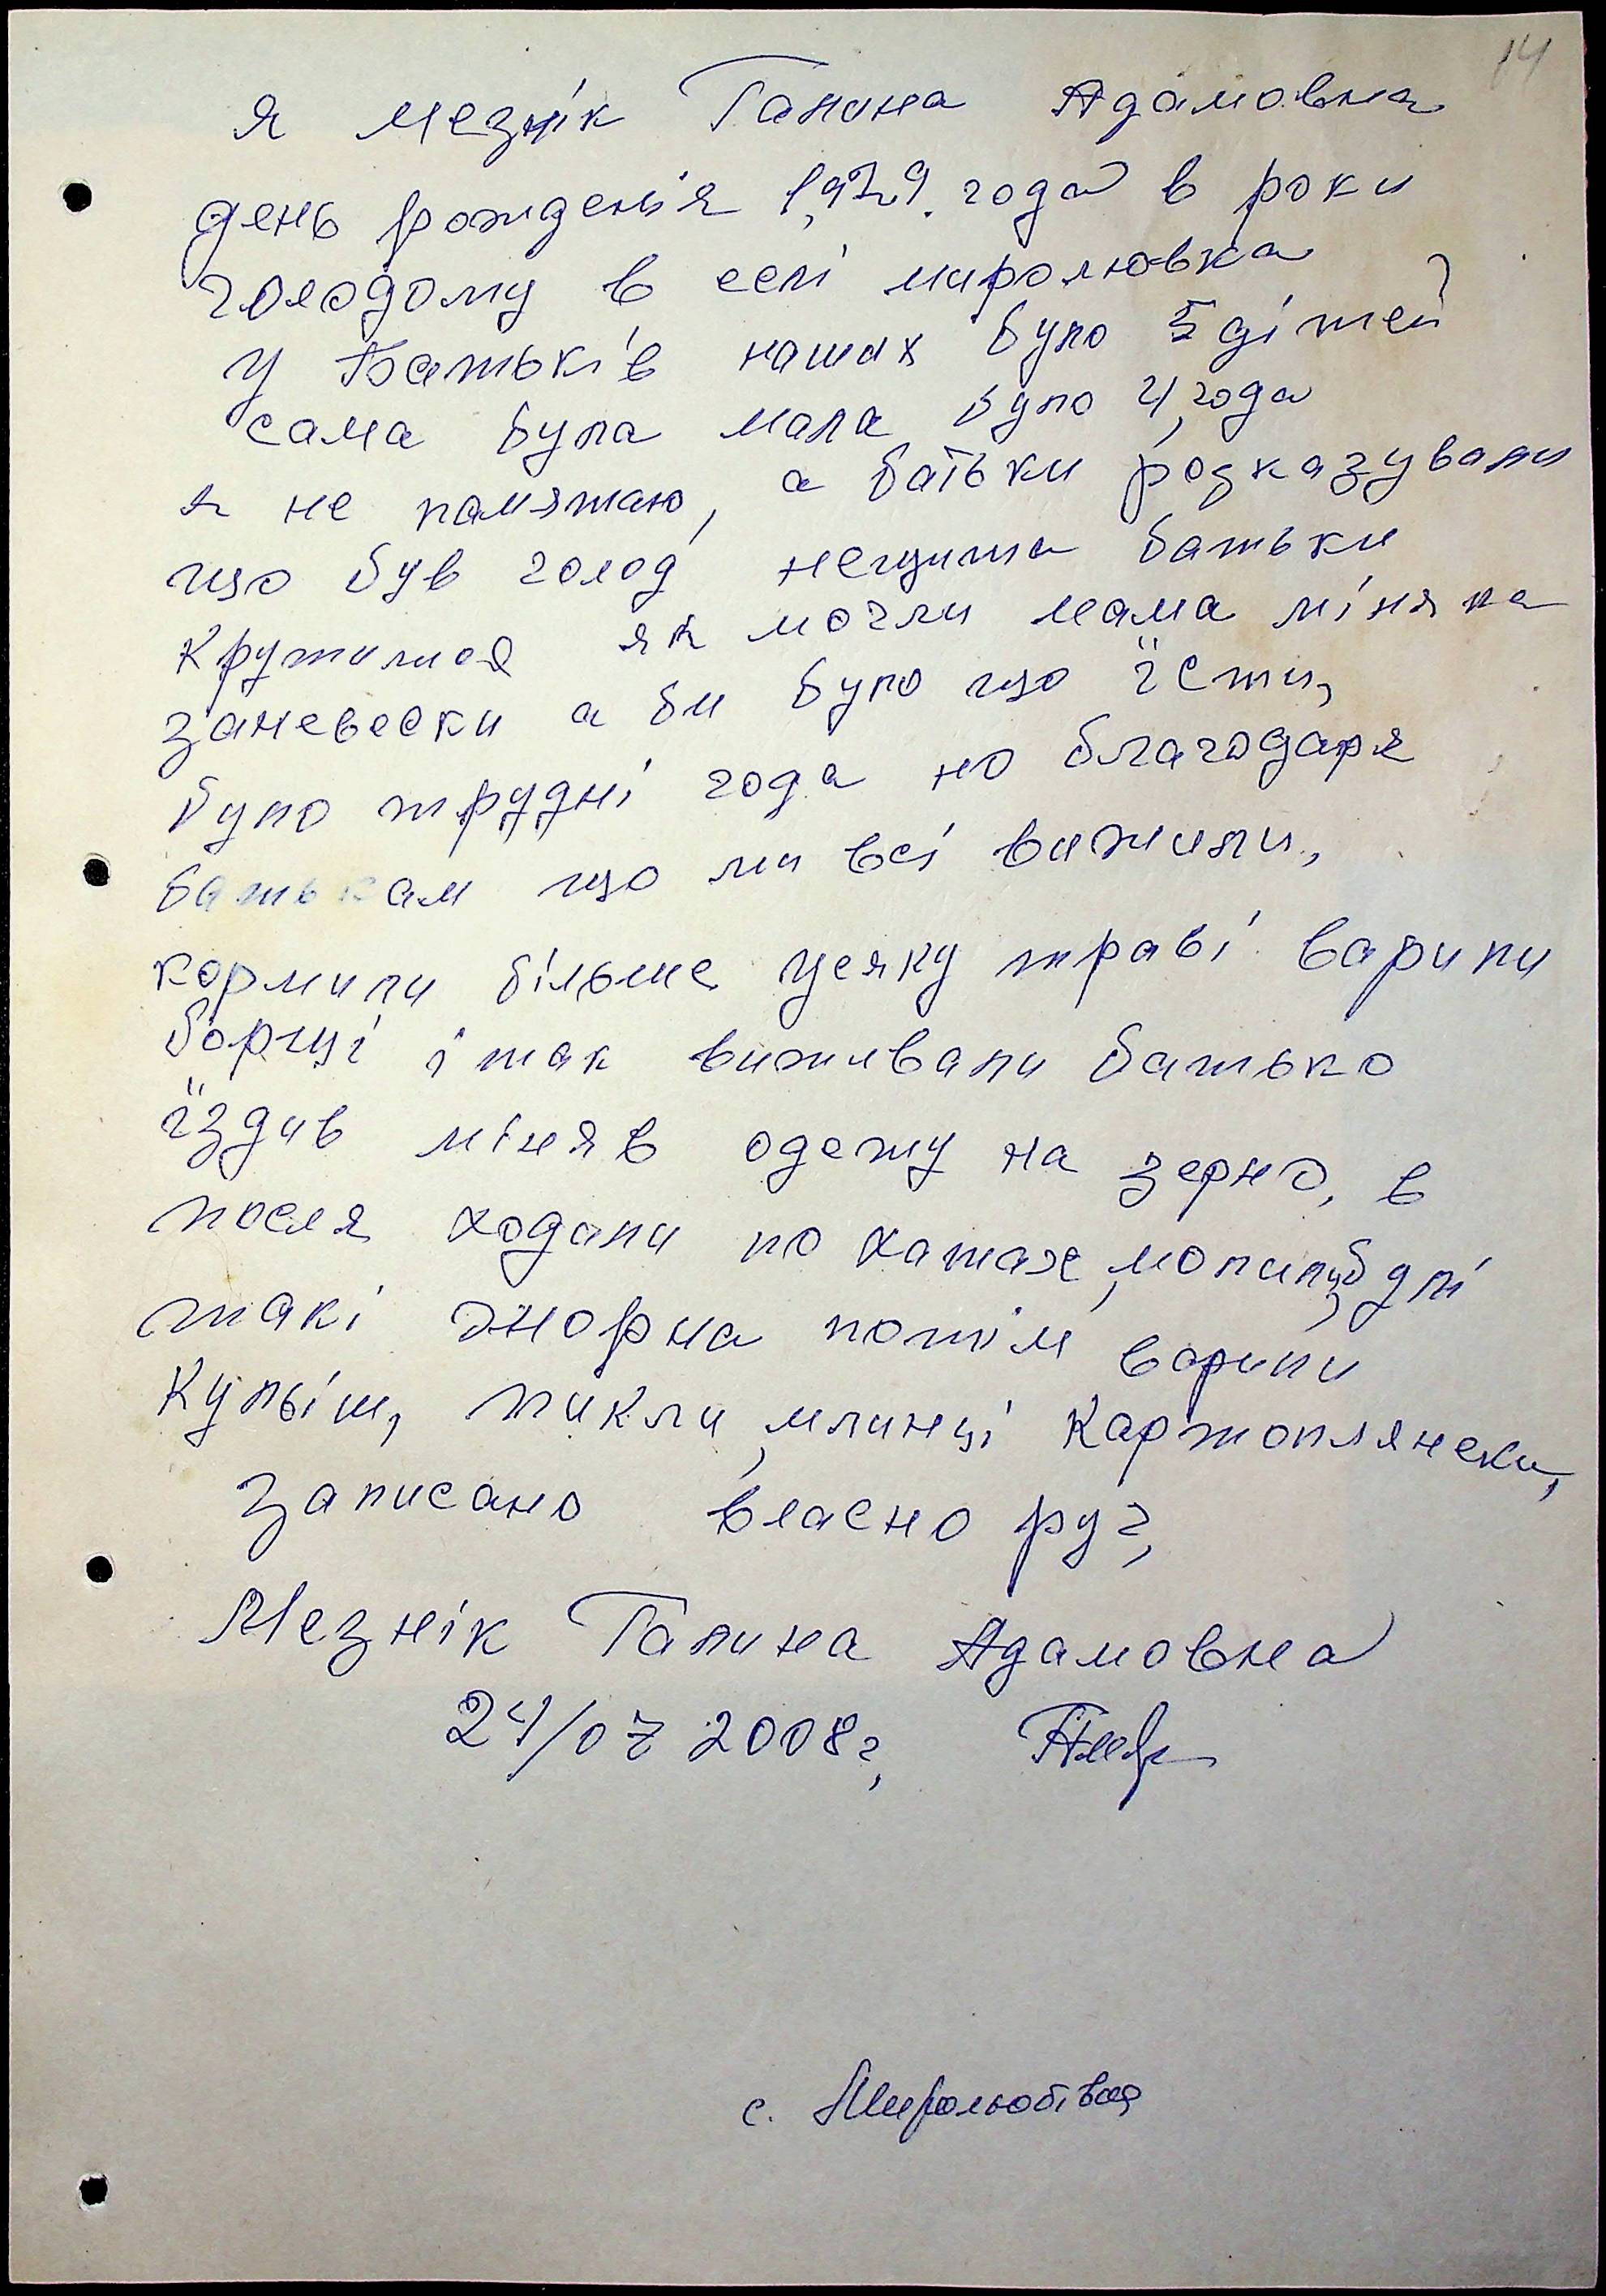 14
я Мезнік Галина Адамовна
день рожденія 1929. года в роки
голодому в селі миролювка
у Батьків наших було 5 дітей
сама була мала було 4, года
я не памятаю, а батьки росказували
що був голод нещита батьки
крутилися як могли мама міняла
заневески а би було що їсти,
було трудні года но благодаря
батькам що ми всі вижили,
кормили більше усяку траві варили
борщі і так виживали батько
їздив міняв одежу на зерно, в
после ходили по хатах, молили, булі
такі жорна потім варили
куліш, пикли, млинці картоплянски,
записано власно руг,
Мезнік Галина Адамовна
24/07 2008г,
с. Миролюбівка